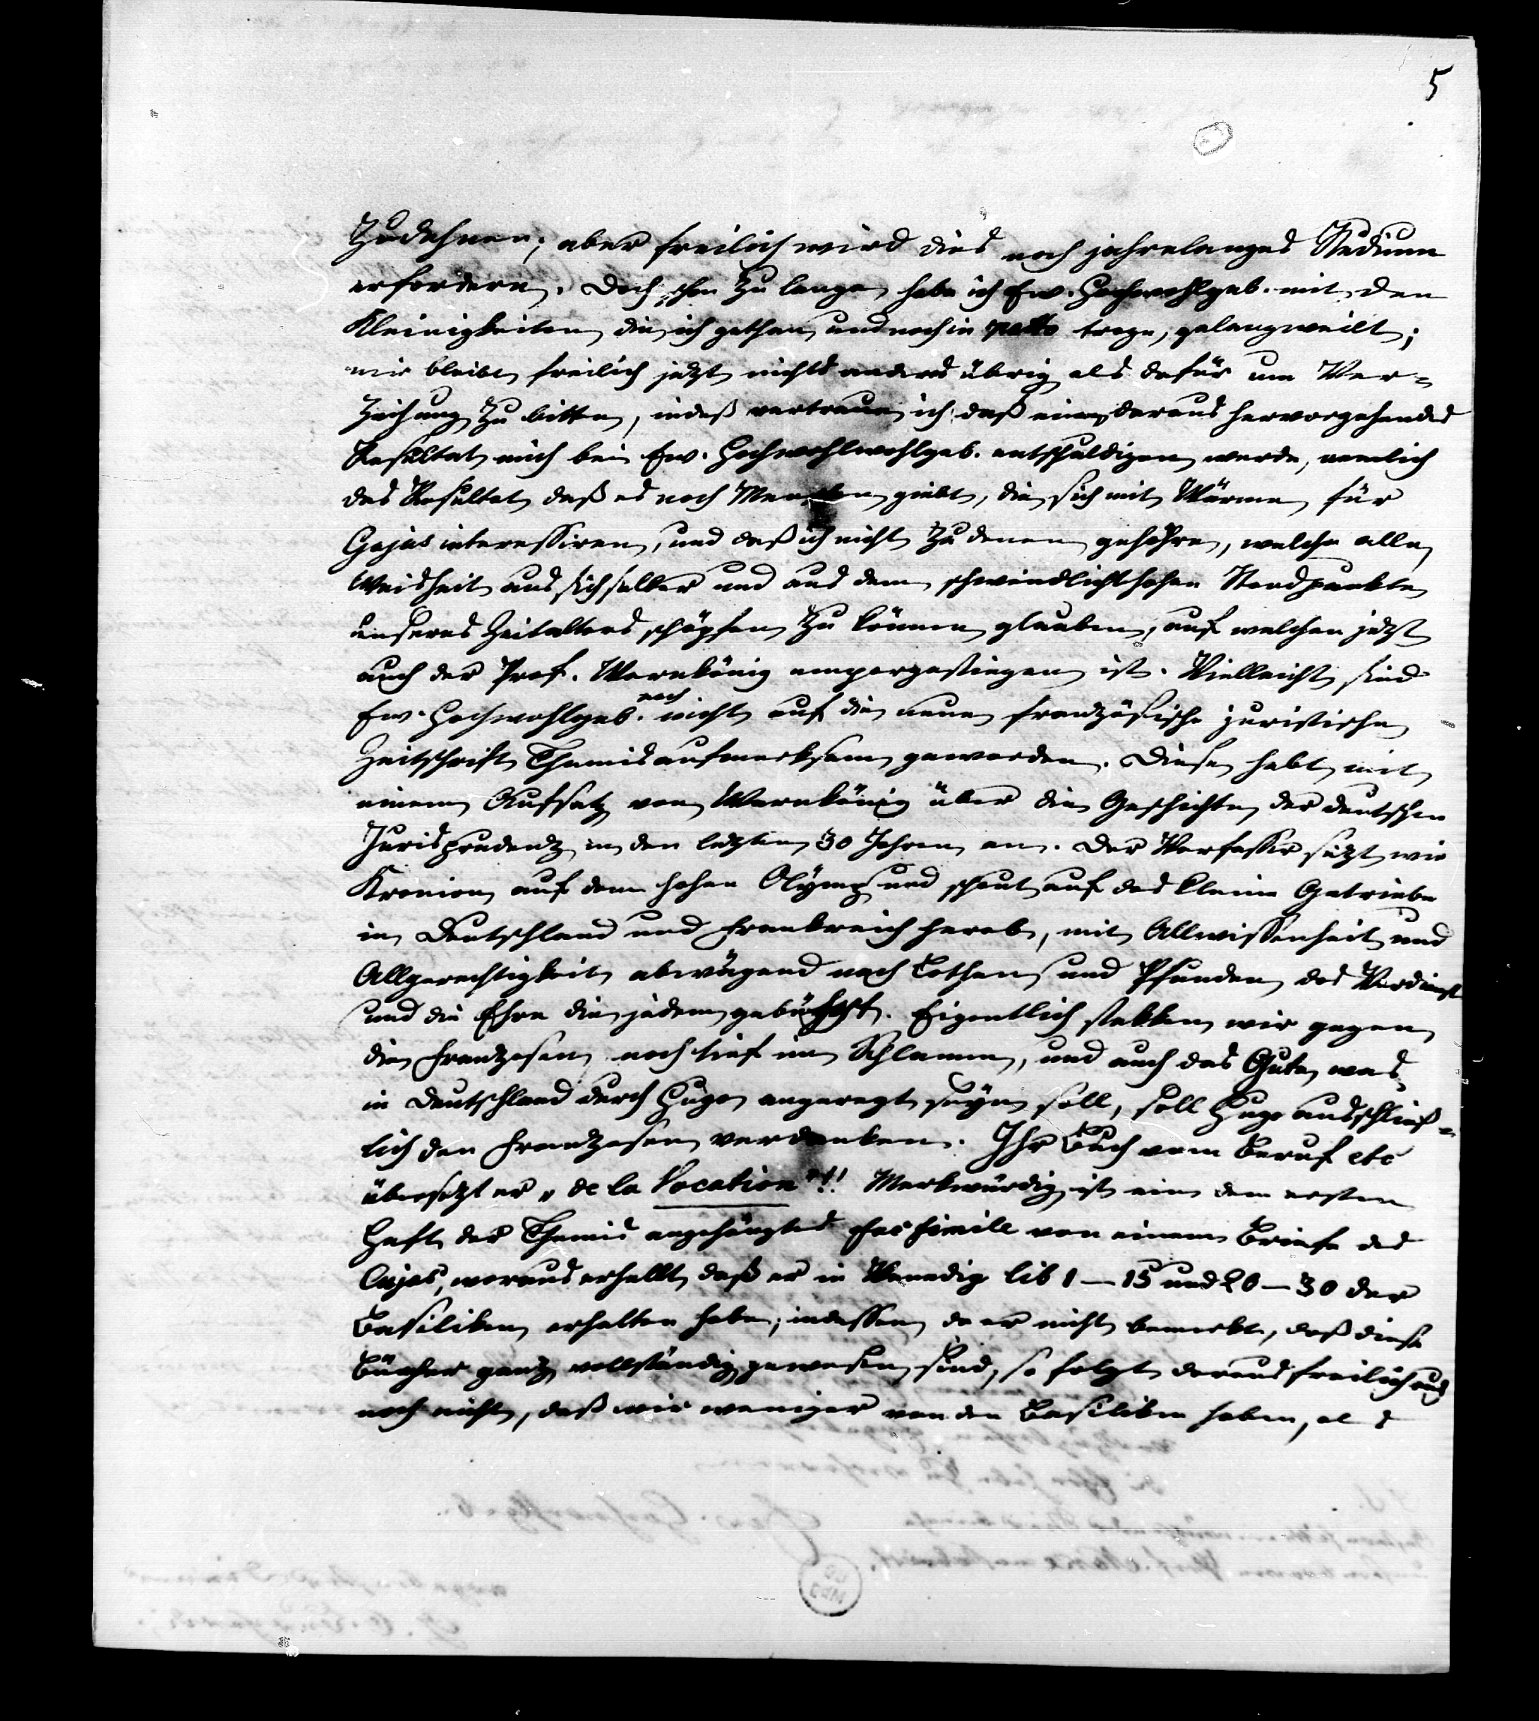 5
zudehnen; aber freilich wird dies noch jahrelanges Studium
erfordern. Doch schon zu lange habe ich Ew. Hochwohlgeb. mit den
Kleinigkeiten die ich gethan und noch in petto trage, gelangweilt;
mir bleibt freilich jetzt nichts anders übrig als dafür um Ver-
zeihung zu bitten, indeß vertraue ich daß ein daraus hervorgehendes
Resultat mich bei Ew. Hochwohlwohlgeb. entschuldigen werde, nemlich
das Resultat daß es noch Menschen giebt, die sich mit Wärme für
Gajus interessiren, und daß ich nicht zu denen gehöre, welche alle
Weisheit aus sich selber und aus dem schwindlichthohen Standpunkte
unseres Zeitalters schöpfen zu können glauben, auf welchen jetzt
auch der Prof. Warnkönig emporgestiegen ist. Vielleicht sind
Ew. Hochwohlgeb. noch nicht auf die neue französische juristische
Zeitschrift Themis aufmerksam geworden. Diese hebt mit
einem Aufsatz von Warnkönig über die Geschichte der deutschen
Jurisprudenz in den letzten 30 Jahren an. Der Verfasser sitzt wie
Kronion auf dem hohen Olymp und schaut auf das kleine Getriebe
in Deutschland und Frankreich herab, mit Allwissenheit und
Allgerechtigkeit abwägend nach Lothen und Pfunden das Verdienst
und die Ehre die jedem gebührt. Eigentlich stekken wir gegen
die Franzosen noch tief im Schlamm, und auch das Gute was
in Deutschland durch Hugo angeregt seyn soll, soll Hugo ausschließ-
lich den Franzosen verdanken. Ihr Buch vom Beruf etc
übersetzt er „de la Vocation"!! Merkwürdig ist ein dem ersten
Heft der Themis angehängtes facsimile von einem Briefe des
Cujas, woraus erhellt, daß er in Venedig lib 1–15 und 20–30 der
Basiliken erhalten habe; indessen da er nicht bemerkt, daß diese
Bücher ganz vollständig gewesen sind, so folgt daraus freilich auch
noch nicht, daß wir weniger von den Basiliken haben, als